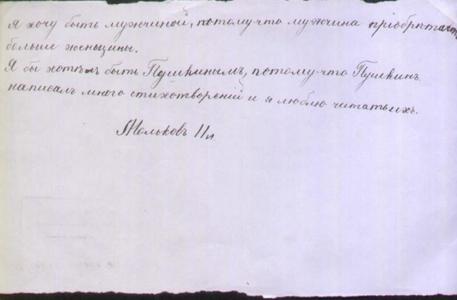 я хочу быть мужчиной, потому-что мужчина пріобрѣтаетъ
больше женщины.
Я бы хотѣлъ быть Пушкинымъ, потому-что Пушкинъ
написалъ много стихотвореній и я люблю читать ихъ.
11 л.